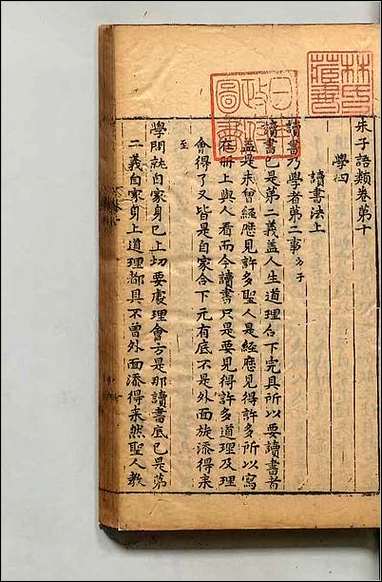 朱子語類卷第十
學四
讀書法上
讀書乃學者第二事方子
讀書已是第二義蓋人生道理合下完具所以要讀書者
蓋是未曾經歷見許多聖人是經歷見得許多所以寫
在冊上與人看而今讀書只是要見得許多道理及理
會得了又皆是自家合下元有底不是外面旋添得來
至
學問就自家身己上切要處理會方是那讀書底已是第
二義自家身上道理都具不曾外面添得來然聖人教
林氏藏書
日本政府圖書